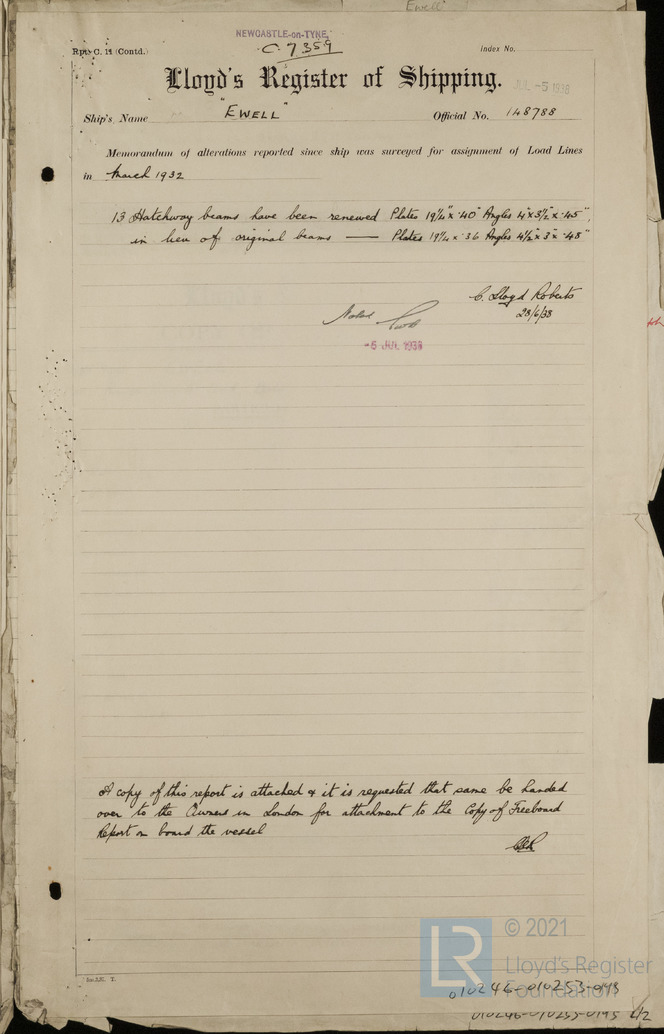 Ewell
NEWCASTLE-on-TYNE
Rpt. C. 11 (Contd.)
C. 7359
Index No.
Lloyd's Register of Shipping.
JUL -5 1938
Ship's Name "EWELL" Official No. 148788
Memorandum of alterations reported since ship was surveyed for assignment of Load Lines
in March 1932
13 Hatchway beams have been renewed Plates 19¼" x .40" Angles 4" x 3½" x .45",
in lieu of original beams — Plates 19¼ x .36 Angles 4½" x 3" x .48"
C. Lloyd Roberts
28/6/38
Noted
-5 JUL 1938
A copy of this report is attached & it is requested that same be handed
over to the Owners in London for attachment to the Copy of Freeboard
Report on board the vessel
CLR
© 2021
LR
Lloyd's Register
Foundation
010246-010253-0198
010246-010253-0195 2/2